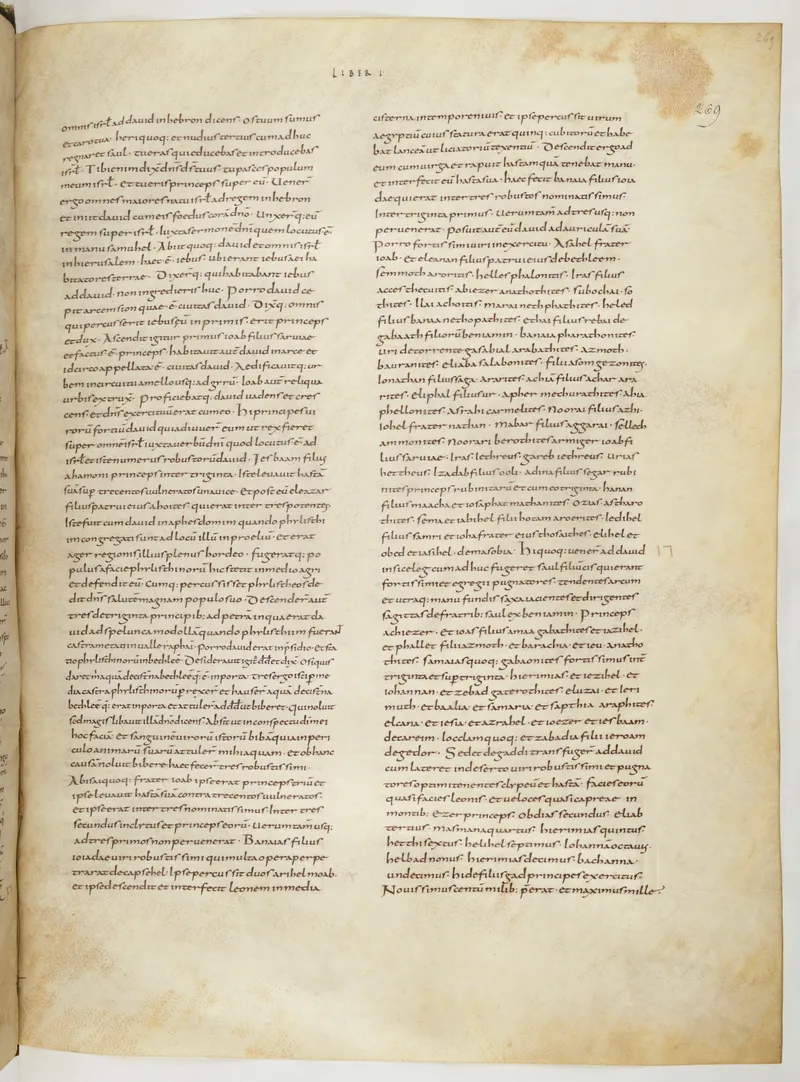 LIBER I
269
269
omnis isrl ad dauid in hebron dicens. Os tuum sumus
et caro tua. heri quoq: et nudius tercius cum adhuc
regnaret saul. tu eras qui educebas et introducebas
isrl. Tibi enim dix dns ds tuus. tu pasces populum
meum isrl. et tu eris princeps super eu. Uener
ergo omnes maiores natu isrl ad regem in hebron
et iniit dauid cum eis foedus cora dno. Unxer q: eu
regem super isrl. iuxta sermone dni quem locutus e
in manu samuhel. Abiit quoq: dauid et omnis isrl
in hierusalem. haec e iebus. ubi erant iebusaei ha
bitatores terrae. Dixer q: qui habitabant iebus
ad dauid. non ingredieris huc. Porro dauid ce
pit arcem sion quae e ciuitas dauid. Dixq: omnis
qui percusserit iebuseu in primis. erit princeps
et dux. Ascendit igitur primus ioab filius saruiae
et factus e princeps. habitauit aut dauid in arce et
idcirco appellata e ciuitas dauid. Aedificauitq: ur
bem in circuitu a mello usq: ad gyru. Ioab aut reliqua
urbis extrux. Proficiebatq: dauid uadens et cres
cens. et dns exercituu erat cum eo. Hi principes ui
roru fortiu dauid qui adiuuer eum ut rex fieret
super omne isrl iuxta uerbu dni quod locutus e ad
isrl et iste numerus robustoru dauid. Iesbaam filius
ahamoni princeps inter triginta. Iste leuauit hasta
sua sup trecentos uulneratos una uice. Et post eu eleazar
filius patrui eius ahoites qui erat inter tres potentes.
Iste fuit cum dauid in aphesdomim quando phylisthi
im congregati sunt ad locu illu in proeliu. et erat
ager regionis illius plenus hordeo. fugeratq: po
pulus a facie phylisthinoru. hic stetit in medio agri
et defendit eu. Cumq: percussisset phylistheos de
dit dns salute magnam populo suo. Descender aut
tres de triginta principib: ad petra in qua erat da
uid ad spelunca modolla quando phylisthiim fuerant
castrametati in ualle raphai. porro dauid erat in psidio. et sta
tio phylisthinoru in bethlee. Desiderauit igit dd et dix. O si quis
daret m aqua de cisterna bethlee q: e in porta. tres ergo isti p me
dia castra phylisthinoru prexer et hauser aqua de cisterna
bethlee q: erat in porta et attuler ad dd ut biberet. qui noluit
sed magis libauit illa dno dicens. Absit ut in conspectu di mei
hoc facia. et sanguine uiroru istoru biba qui in peri
culo animaru suaru attuler mihi aquam. et ob hanc
causa noluit bibere. haec fecer tres robustissimi.
Abisai quoq: frater ioab ipse erat princeps triu et
ipse leuauit hasta sua contra trecentos uulneratos.
et ipse erat inter tres nominatissimus. Inter tres
secundus inclytus et princeps eoru. Uerumtam usq:
ad tres primos non peruenerat. Banaias filius
ioiadae uiri robustissimi qui multa opera perpe
trarat de capsehel. Ipse percussit duos arihel moab.
et ipse descendit et interfecit leonem in media
cisterna in tempore niuis. et ipse percussit uirum
aegyptiu cuius statura erat quinq: cubitoru et habe
bat lancea ut liciatoriu texentiu. Descendit ergo ad
eum cum uirga et rapuit hasta qua tenebat manu.
et interfecit eu hasta sua. haec fecit banaia filius ioia
dae qui erat inter tres robustos nominatissimus.
Inter triginta primus. Uerumtam ad tres usq: non
peruenerat. posuit aut eu dauid ad auricula sua.
Porro fortissimi uiri in exercitu. Asahel frater
ioab. Et eleanan filius patrui eius de bethleem.
semmoth arorites. helles phalonites. Iras filius
acces thecuites. abiezer anathothites. sobochai. so
thites. Ilai achoites. marai nethophathites. heled
filius banaa nethopathites. ethai filius rebai de
gabaath filioru beniamin. banaia pharathonites.
uri de torrente gasabial arabathites. azmoth.
bauranites. eliaba salabonites. filii asom gezonites.
Ionathan filius saga. Ararites. achia filius achar ara
rites. eliphal filius ur. apher mechurathites. ahia
phellonites. Asrahi carmelites. Noorai filius azbi.
iohel frater nathan. Mabar filius aggarai. Sellech
ammonites. Noorai berothites armiger ioab fi
lius saruiae. Iras iethreus. gareb iethreus. Urias
hettheus. Izadab filius ooli. adina filius segar rubi
nites princeps rubinitaru et cum eo triginta. hanan
filius maacha et iosaphat mathanites. Ozias astharo
thites. sema et iahihel filii hotam aroerites. Iedihel
filius samri et ioha frater eius thosaites. elihel et
obed et iasihel. de masobia. Hi quoq: uener ad dauid
in siceleg cum adhuc fugeret saul filiu cis qui erant
fortissimi et egregii pugnatores. tendentes arcum
et utraq: manu fundis saxa iacientes et dirigentes
sagittas de fratrib: saul ex beniamin. Princeps
achiezer. et ioas filius amaa gabathites et iazihel.
et phallet filius azmoth. et barachia et ieu. anatho
thites. samaias quoq: gabaonites fortissimus int
triginta et super triginta. hieremias et iezihel. et
iohannan. et zebad gazerothites. eluzai. et leri
muth. et baalia. et samaria. et saphthia araphites.
elcana. et iesia. et azrahel. et ioezer et iesbaam.
de tareim. Ioelam quoq: et zabadia filii ieroam
de gedor. Sed et de gaddi transfuger ad dauid
cum lateret in deserto uiri robustissimi et pugna
tores optimi tenentes clypeu et hasta. facies eoru
quasi facies leonis. et ueloces quasi capreae in
montib: Ezer princeps. Obdias secundus. eliab
tertius. masmana quartus. hieremias quintus.
hethi sextus. helihel septimus. Iohanna octauus.
helbad nonus. hieremias decimus. bachanna.
undecimus. hi de filiis gad principes exercitus.
Nouissimus centu milib: perat. et maximus mille.